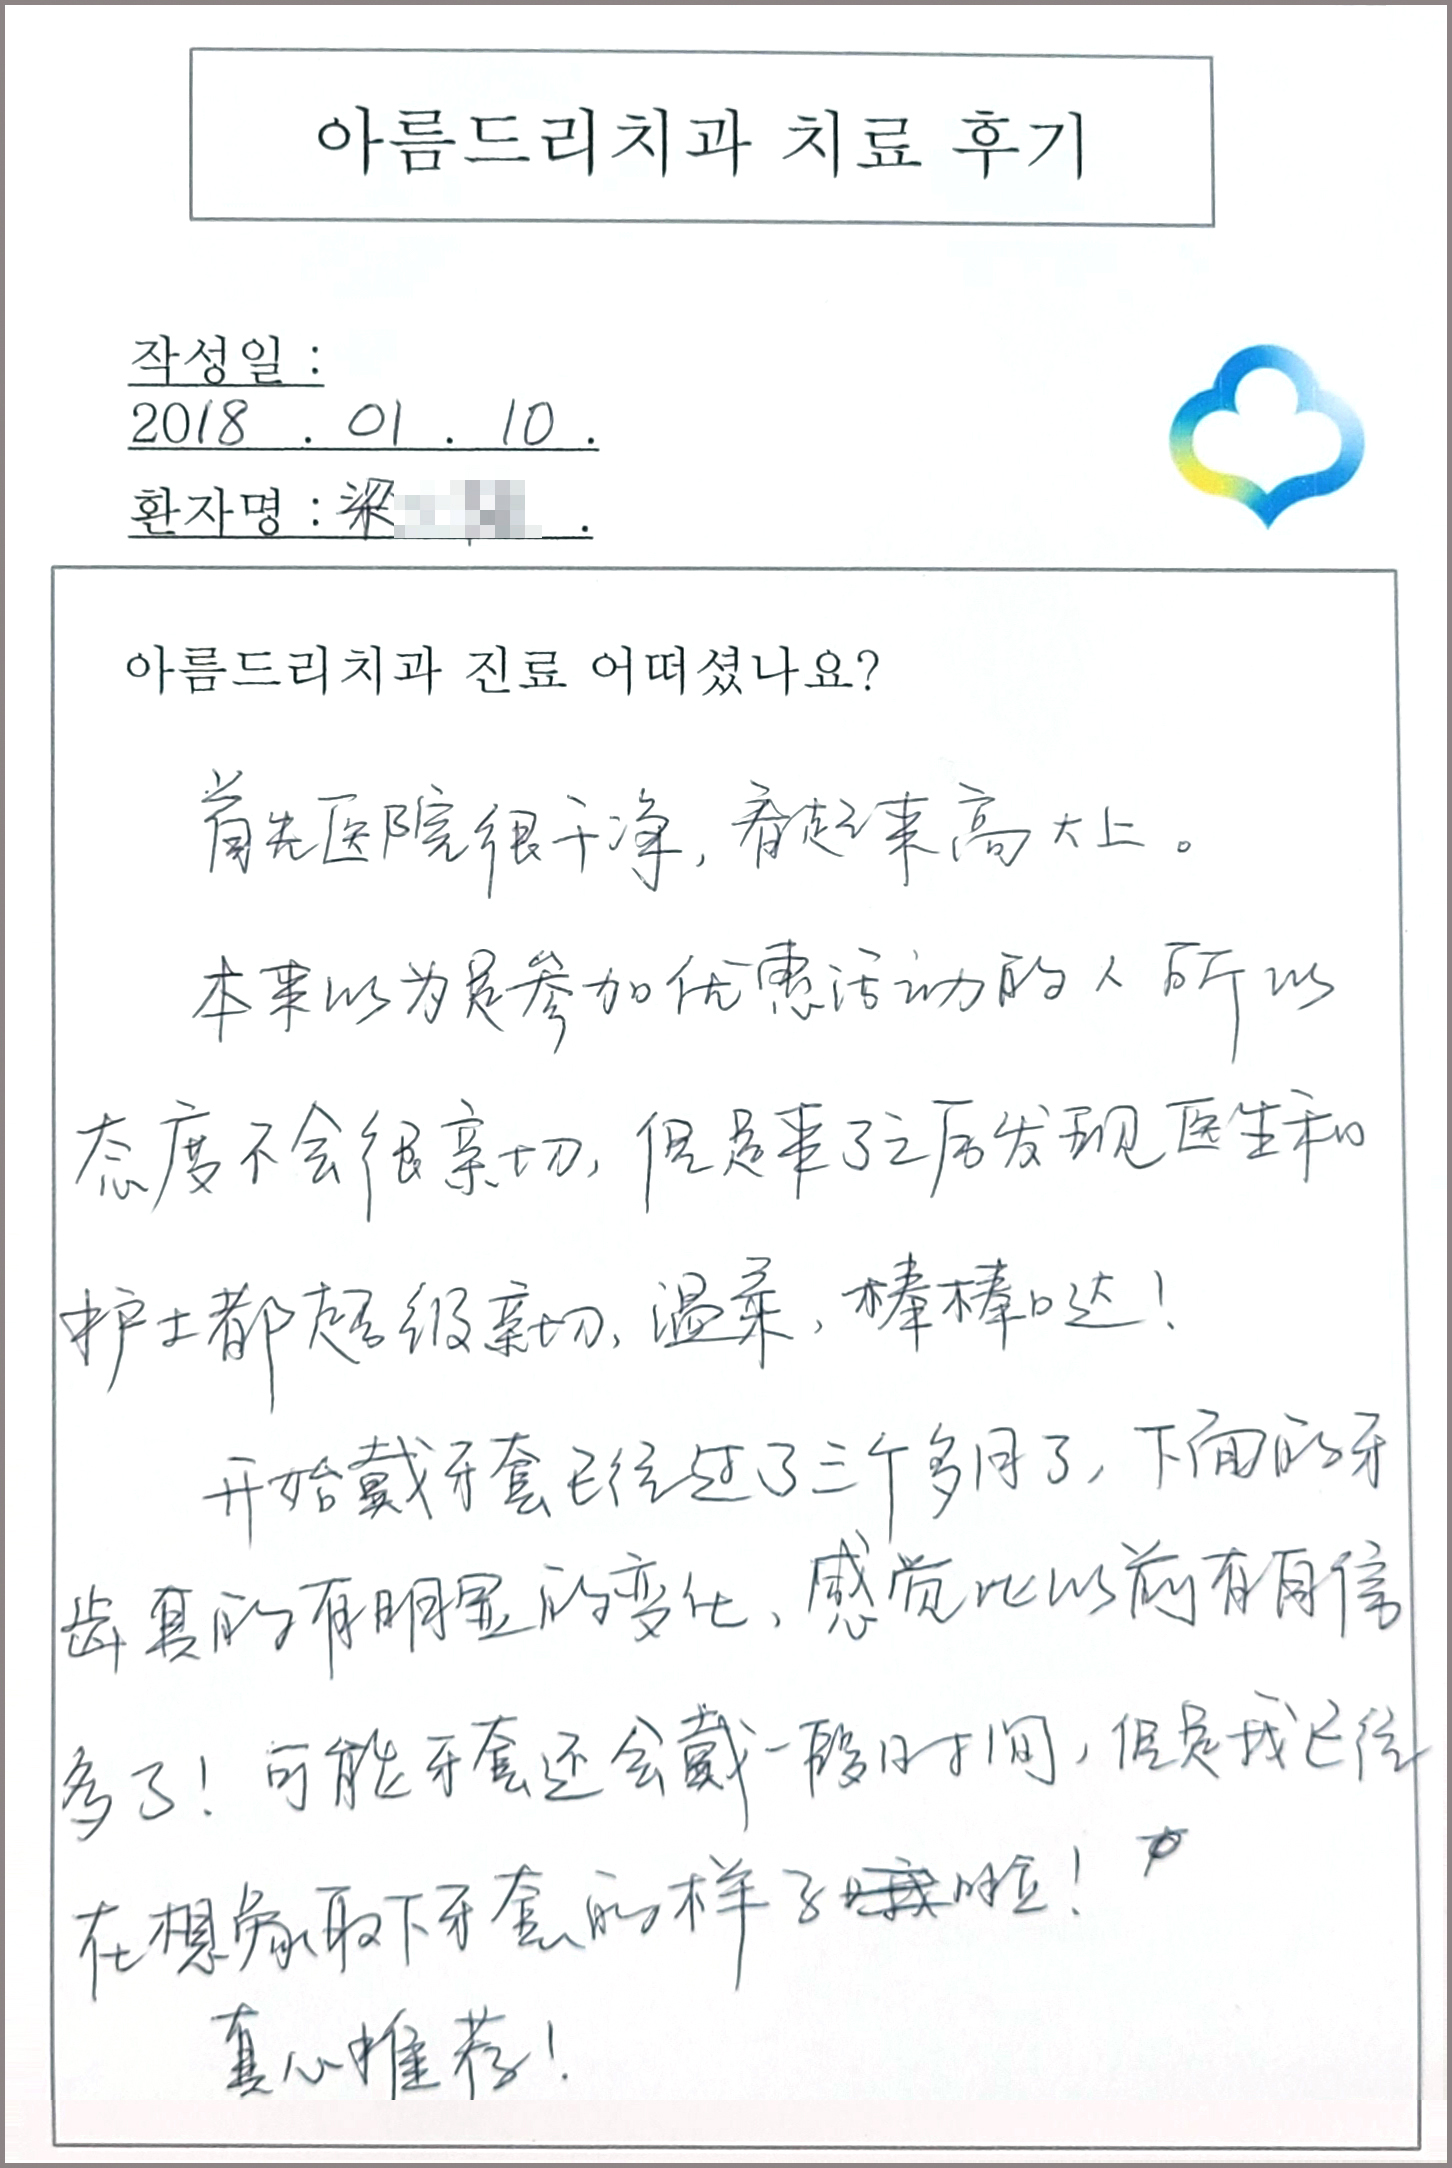 아름드리치과 치료 후기
작성일 :
2018 . 01 . 10 .
환자명 : 梁 .
아름드리치과 진료 어떠셨나요?
首先医院很干净, 看起来高大上。
本来以为是参加优惠活动的人所以
态度不会很亲切, 但是来了之后发现医生和
护士都超级亲切, 温柔, 棒棒哒!
开始戴牙套已经过了三个多月了, 下面的牙
齿真的有明显的变化, 感觉比以前有自信
多了! 可能牙套还会戴一段时间, 但是我已经
在想象取下牙套的样子啦!
真心推荐!